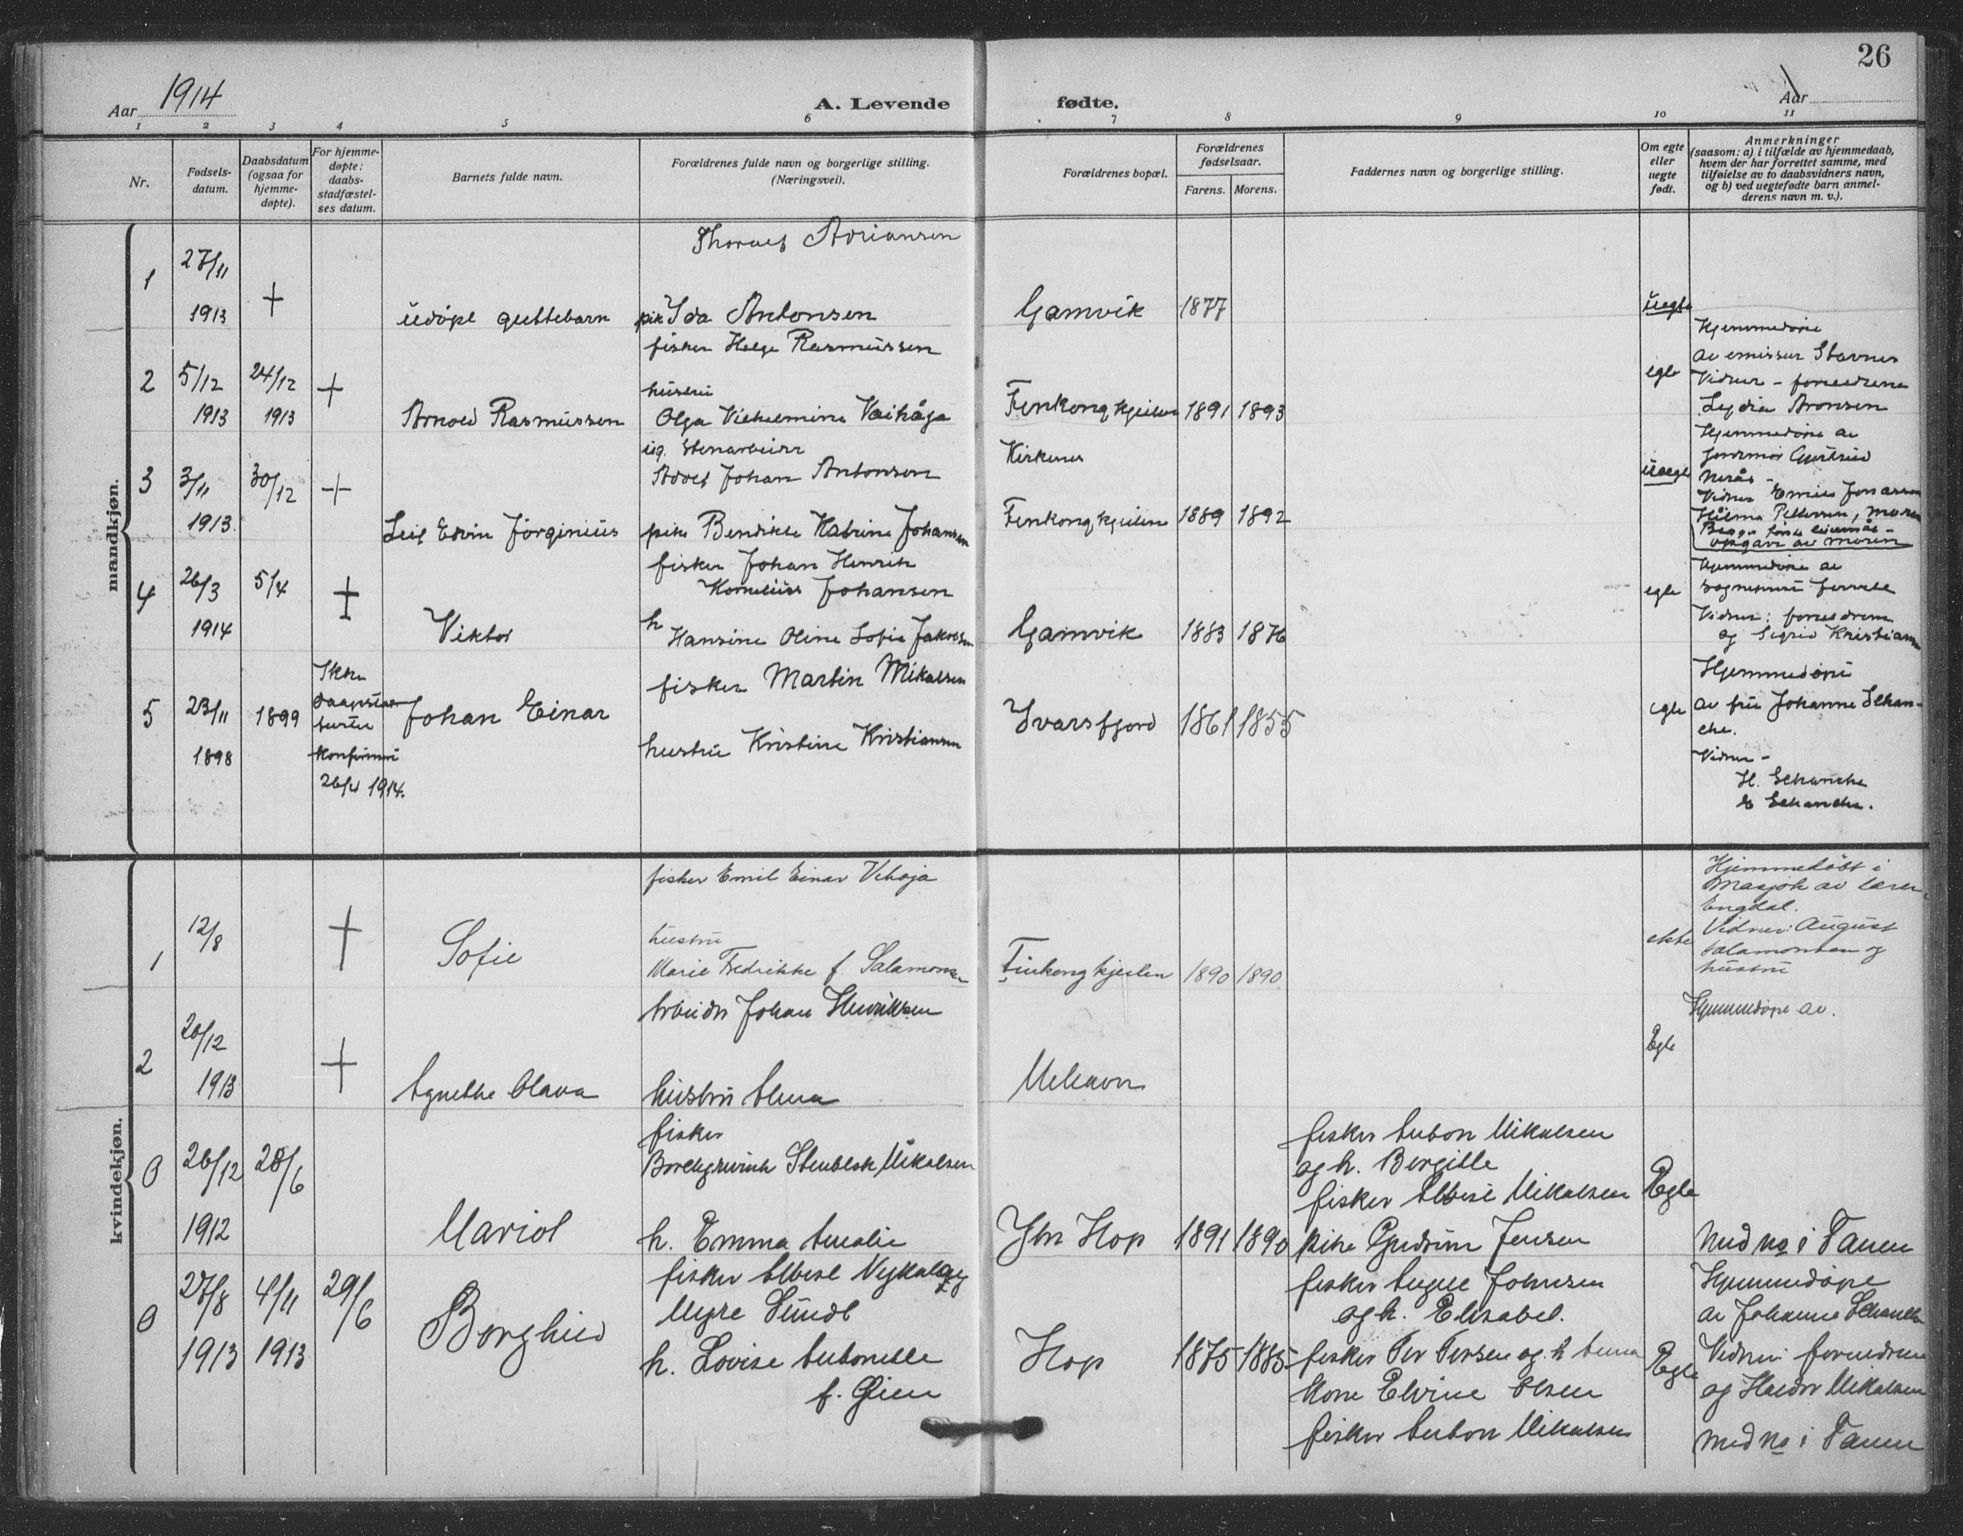 26
Aar 1914
A. Levende fødte.
Aar
1 2 3 4 5 6 7 8 9 10 11
Nr.
Fødsels-
datum.
Daabsdatum
(ogsaa for
hjemme-
døpte).
For hjemme-
døpte:
daabs-
stadfæstel-
ses datum.
Barnets fulde navn.
Forældrenes fulde navn og borgerlige stilling.
(Næringsvei).
Forældrenes bopæl.
Forældrenes
fødselsaar.
Farens. Morens.
Faddernes navn og borgerlige stilling.
Om egte
eller
uegte
født.
Anmerkninger
(saasom: a) i tilfælde av hjemmedaab,
hvem der har forrettet samme, med
tilføielse av to daabsvidners navn,
og b) ved uegtefødte barn anmel-
derens navn m. v.).
mandkjøn.
1
27/11
1913
+
udøpt guttebarn
Thoralf Adriansen
pik Ida Antonsen
Gamvik
1877
uegte
2
5/12
1913
24/12
1913
+
Arnold Rasmussen
fisker Helge Rasmussen
hustru
Olga Vilhelmine
Finkongkjeilen
1891 1893
egte
Hjemmedøpt
av emissær Stavnes
Vidner – forældrene
Lydia Aronsen
3
3/11
1913
30/12
+
Leif Edvin Jørginius
ug. Stenarbeider
Adolf Johan Antonsen
pike Bendikte Katrine Johansen
Kirkenes
Finkongkjeilen
1889 1892
uegte
Hjemmedøpt av
jordmor
Vidner Emilie
Hilma Pettersen, moren
opgave av moren
4
26/3
1914
5/4
+
Viktor
fisker Johan Henrik
Kornelius Johansen
h
Hansine Oline Sofie
Gamvik
1883 1876
egte
Hjemmedøpt av
Vidner: forældrene
og Sigrid
5
23/11
1898
1899
Ikke
konfirmert
26/4 1914.
Johan Einar
fisker Martin Mikalsen
hustru Kristine Kristiansen
Ivarsfjord
1861 1855
egte
Hjemmedøpt
av fru Johanne Schan-
che.
Vidner –
H. Schanche
E Schanche.
kvindekjøn.
1
12/8
+
Sofie
fisker Emil Einar
hustru
Marie Fredrikke f. Salamonsen
Finkongkjeilen
1890 1890
ekte
Hjemmedøbt i
Masjok av lærer
Engdal.
Vidner: August
Salamonsen og
hustru
2
20/12
1913
+
Agnethe Olava
Arbeider Johan Henriksen
hustru
Mehavn
Egte
Hjemmedøpt av.
0
26/12
1912
28/6
fisker
Mikalsen
h. Emma Amalie
Hop
1891 1890
fisker Anton Mikalsen
og h. Bergitte
fisker Albert Mikalsen
pike Gudrun Jensen
Egte
med no i Tanen
0
27/8
1913
4/11
1913
29/6
Borghild
fisker Albert
Myre Sundt
h. Lovise Antonette
f. Øien
Hop
1875 1885
fisker
og h. Elisabet.
fisker Per Persen og h Anna
kone Elvine Olsen
fisker Anton Mikalsen
Egte
Hjemmedøpt
av Johanne Schanche
Vidner: forældrene
og Mikalsen
med no i Tanen